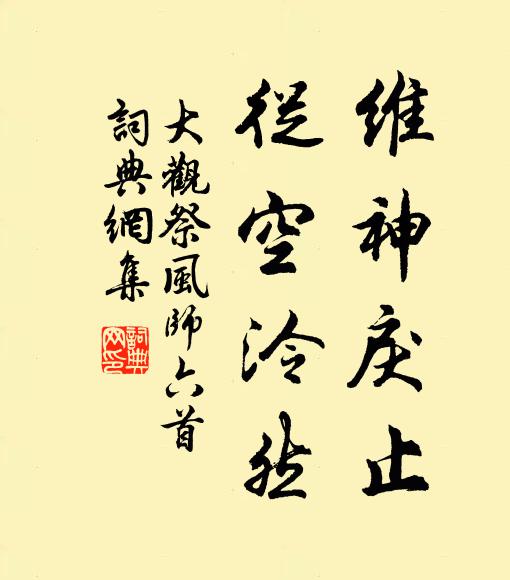 維神戾止
從空泠然
大觀祭風師六首
詞典網集
詞典網印